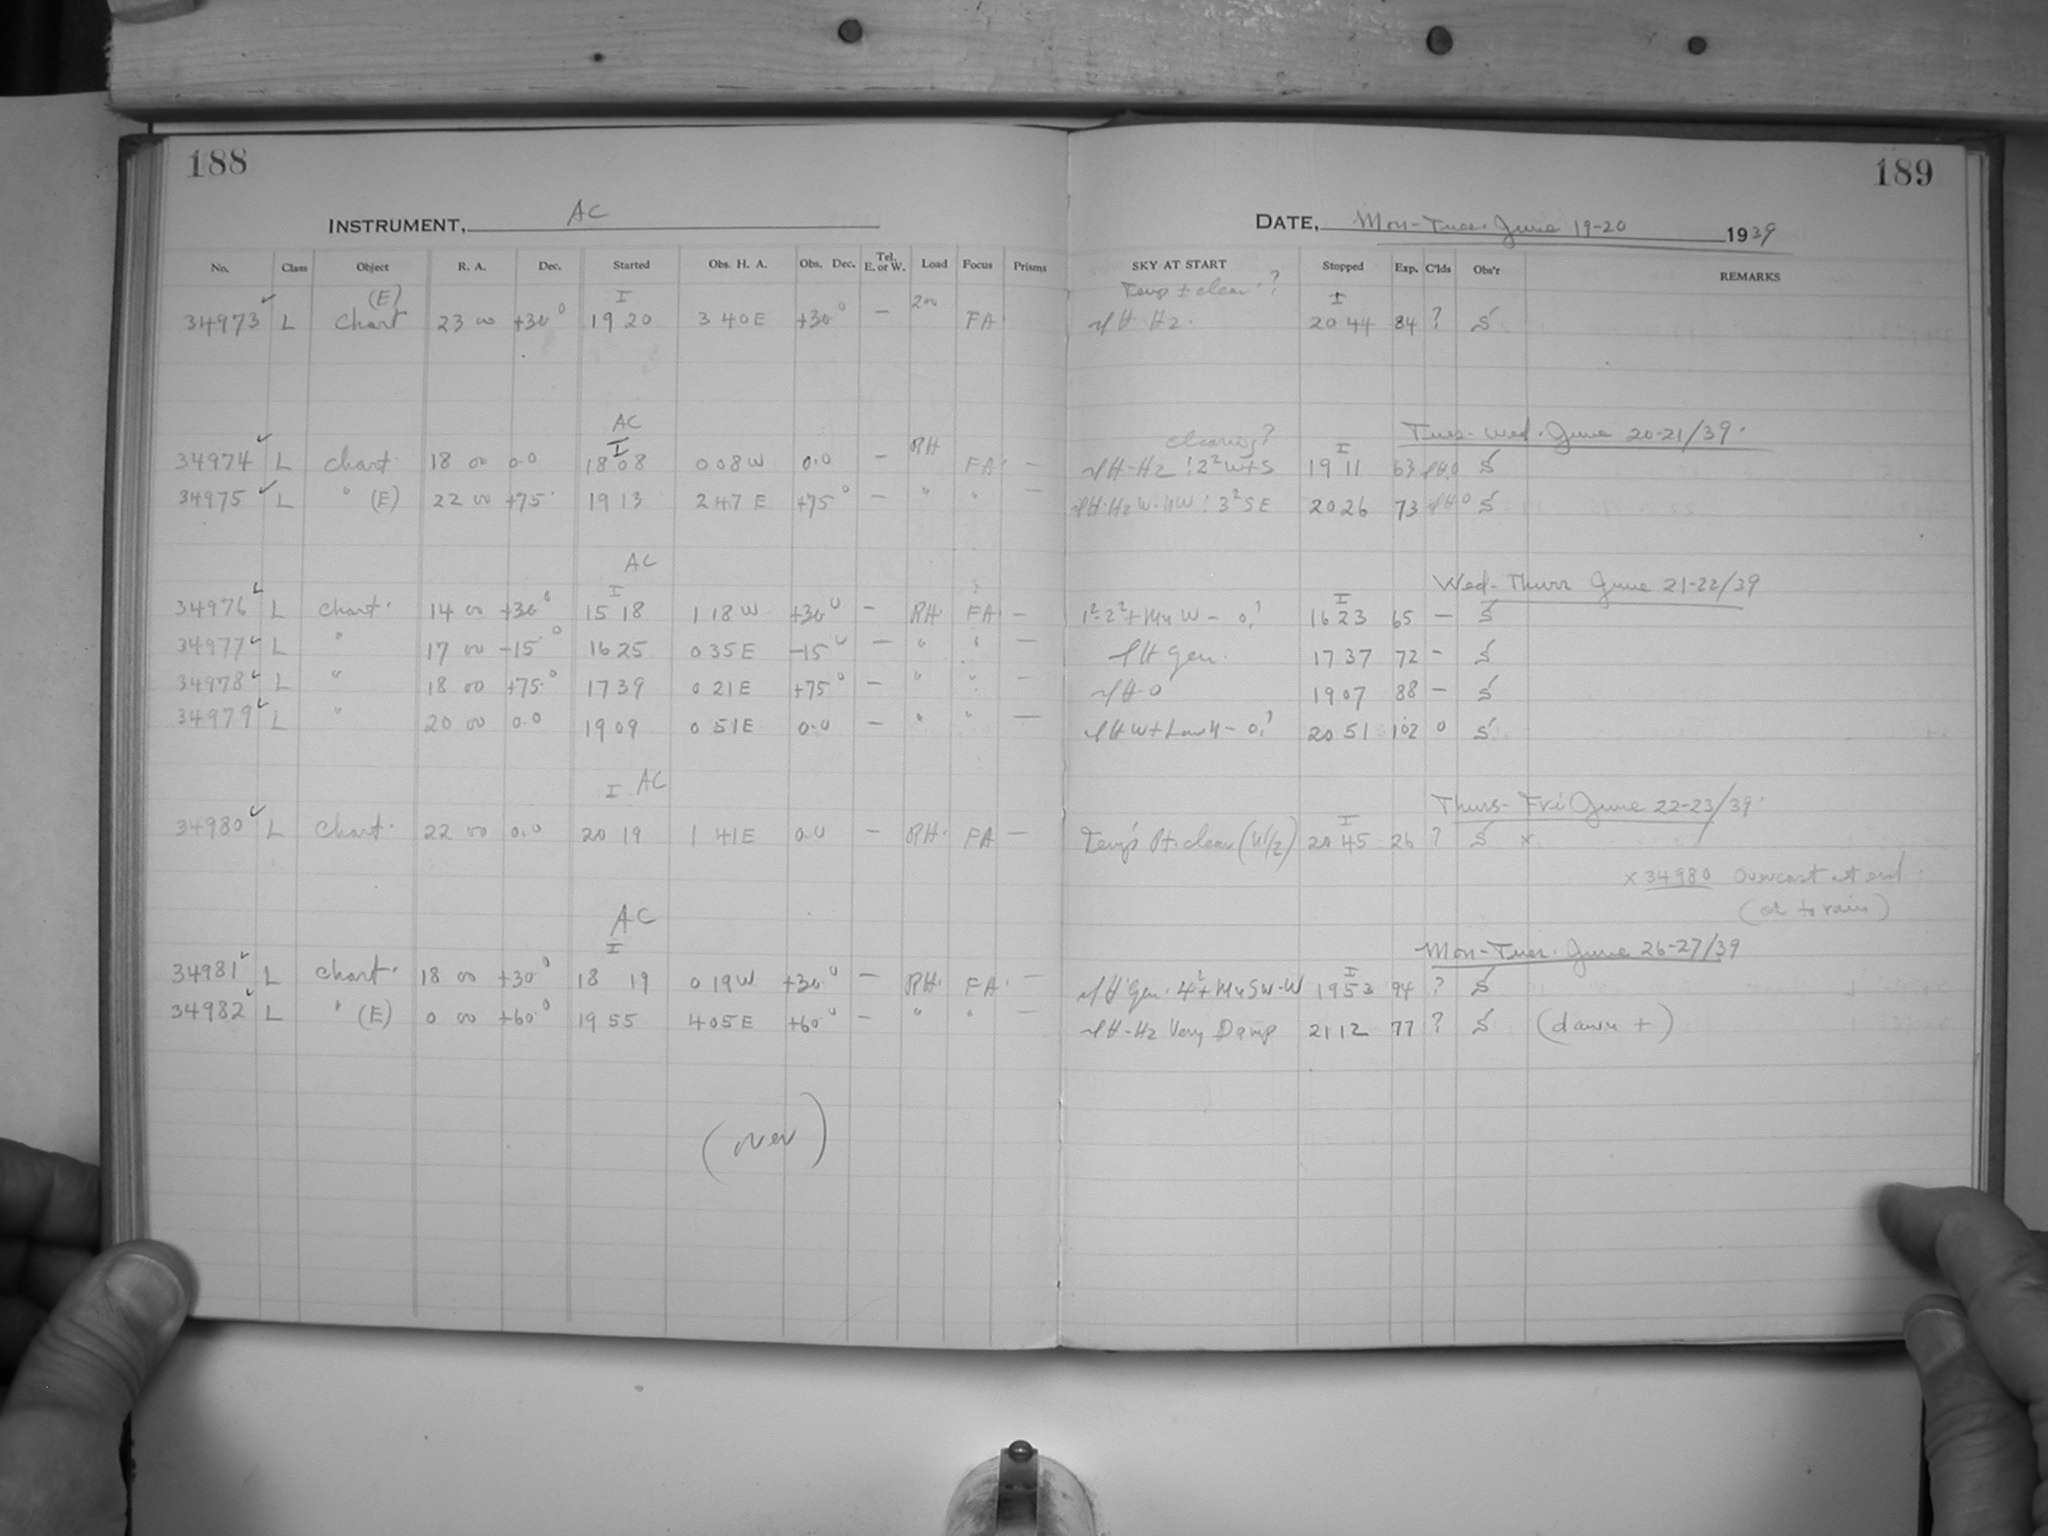 188
189
INSTRUMENT, AC
DATE, Mon-Tues. June 19-20 1939
No. Class Object R. A. Dec. Started Obs. H. A. Obs. Dec. Tel. E. or W. Load Focus Prisms SKY AT START Stopped Exp. C'lds Obs'r REMARKS
(E) I 200 Temp ± clear? I
34973 L Chart 23 00 +30° 19 20 3 40 E +30° — FA Hz. 20 44 84 ? S
AC
I RH clearing? I Tues-Wed. June 20-21/39.
34974 L Chart 18 00 0.0 18 08 0 08 W 0.0 — FA — 19 11 63 S
34975 L " (E) 22 00 +75° 19 13 2 47 E +75° — " " — 20 26 73 S
AC
I I Wed-Thurs June 21-22/39
34976 L Chart. 14 00 +30° 15 18 1 18 W +30° — RH FA — 16 23 65 — S
34977 L " 17 00 -15° 16 25 0 35 E -15° — " " — Gen. 17 37 72 — S
34978 L " 18 00 +75° 17 39 0 21 E +75° — " " — 19 07 88 — S
34979 L " 20 00 0.0 19 09 0 51 E 0.0 — " " — 20 51 102 0 S
I AC I Thurs-Fri June 22-23/39.
34980 L Chart. 22 00 0.0 20 19 1 41 E 0.0 — RH. FA — 20 45 26 ? S x
x 34980 Overcast at end.
AC
I I Mon-Tues. June 26-27/39
34981 L Chart. 18 00 +30° 18 19 0 19 W +30° — RH. FA. — Gen. 19 53 94 ? S
34982 L " (E) 0 00 +60° 19 55 4 05 E +60° — " " — Hz Very Damp 21 12 77 ? S (dawn +)
(over)